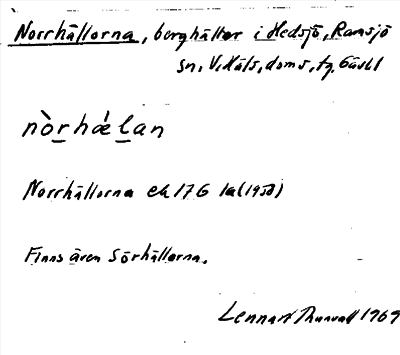 Norrhällorna, berghällar i Hedsjö, Ramsjö
sn, V. Häls, doms, tg. Gävl l
nòrhǽlan
Norrhällorna ek 17G 1a (1958)
Finns även Sörhällorna.
Lennart Thunvall 1969